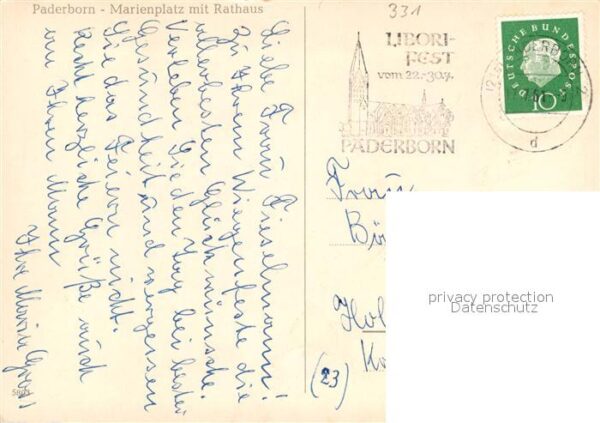 Paderborn - Marienplatz mit Rathaus
Liebe Frau Fieselmann!
Zu Ihrem Wiegenfeste die
allerbesten Glückwünsche.
Verleben Sie den Tag bei bester
Gesundheit und vergessen
Sie das Feiern nicht.
Recht herzliche Grüße auch
an Ihren Mann
Ihre Maria
331
LIBORI-
FEST
vom 22.-30.7.
PADERBORN
DEUTSCHE BUNDESPOST
10
d
Frau
Hol
(23)
privacy protection
Datenschutz